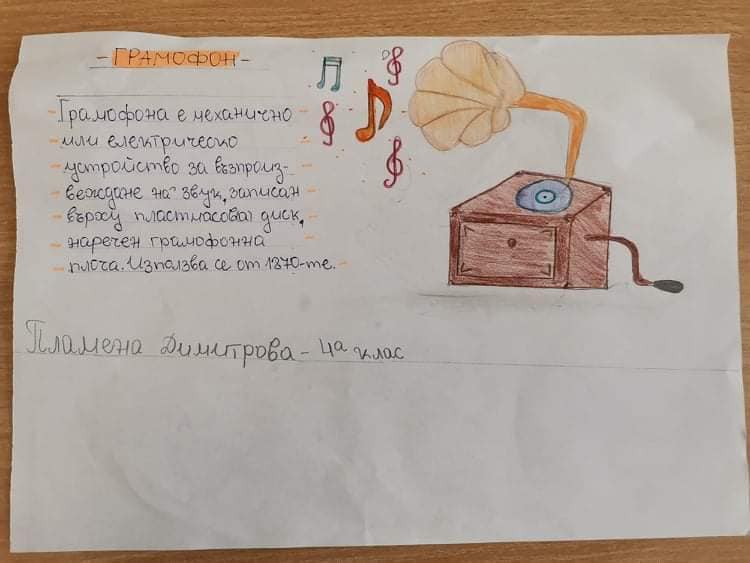 - ГРАМОФОН -
Грамофона е механично
или електрическо
устройство за възпроиз-
веждане на звук, записан
върху пластмасова диск,
наречен грамофонна
плоча. Използва се от 1870-те.
Пламена Димитрова - 4а клас